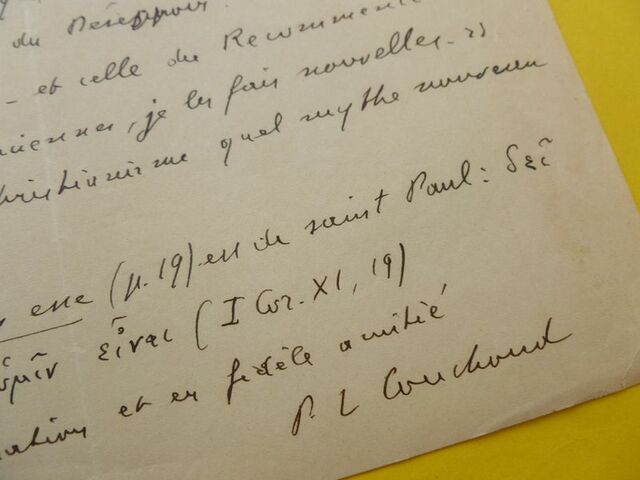 du Désespoir.
- et celle du Recommence
ciennes, je les fais nouvelles. 
hristianisme quel mythe nouveau
esse (p. 19) est de saint Paul : δεῖ
ὑμῖν εἶναι (I Cor. XI, 19)
ations et en fidèle amitié
P. L Couchoud